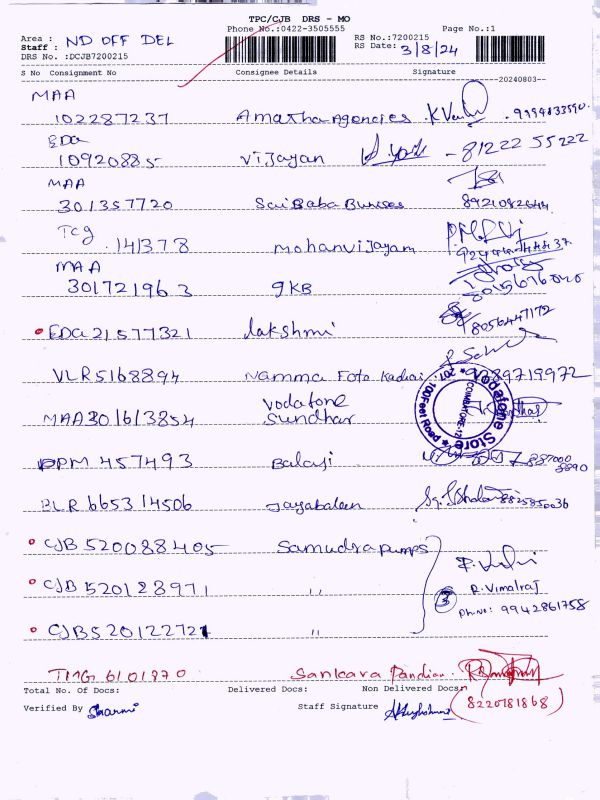 TPC/CJB DRS - MO
Phone No.:0422-3505555 Page No.:1
Area : ND OFF DEL RS No.:7200215
Staff : RS Date: 3/8/24
DRS No. :DCJB7200215
S No Consignment No Consignee Details Signature
20240803--
MAA
102287237 Amartha Agencies 9994833590
EDA
10920885 Vijayan - 81222 55222
MAA
301357720 Sai Baba Burses 8921082644
Tcg
141378 mohanvijayam
MAA
301721963 9KB
EDA 21577321 lakshmi 8056447172
VLR5168894 Namma Foto Kadai 9789719972
Vodafone
MAA301613854 Sundhar
Vodafone Store * 207, 100Feet Road * COIMBATORE-12
PPM 457493 Balaji 887000
8890
BLR 665314506 Jayabalan 8825850036
CJB 520088405 Samudra pumps
CJB 520128971 "
③ R. Vimalraj
Ph.No: 9942861758
CJB520122721 "
TMG 6101870 Sankara Pandian
Total No. Of Docs: Delivered Docs: Non Delivered Docs:
(8220181868)
Verified By Sharmi Staff Signature